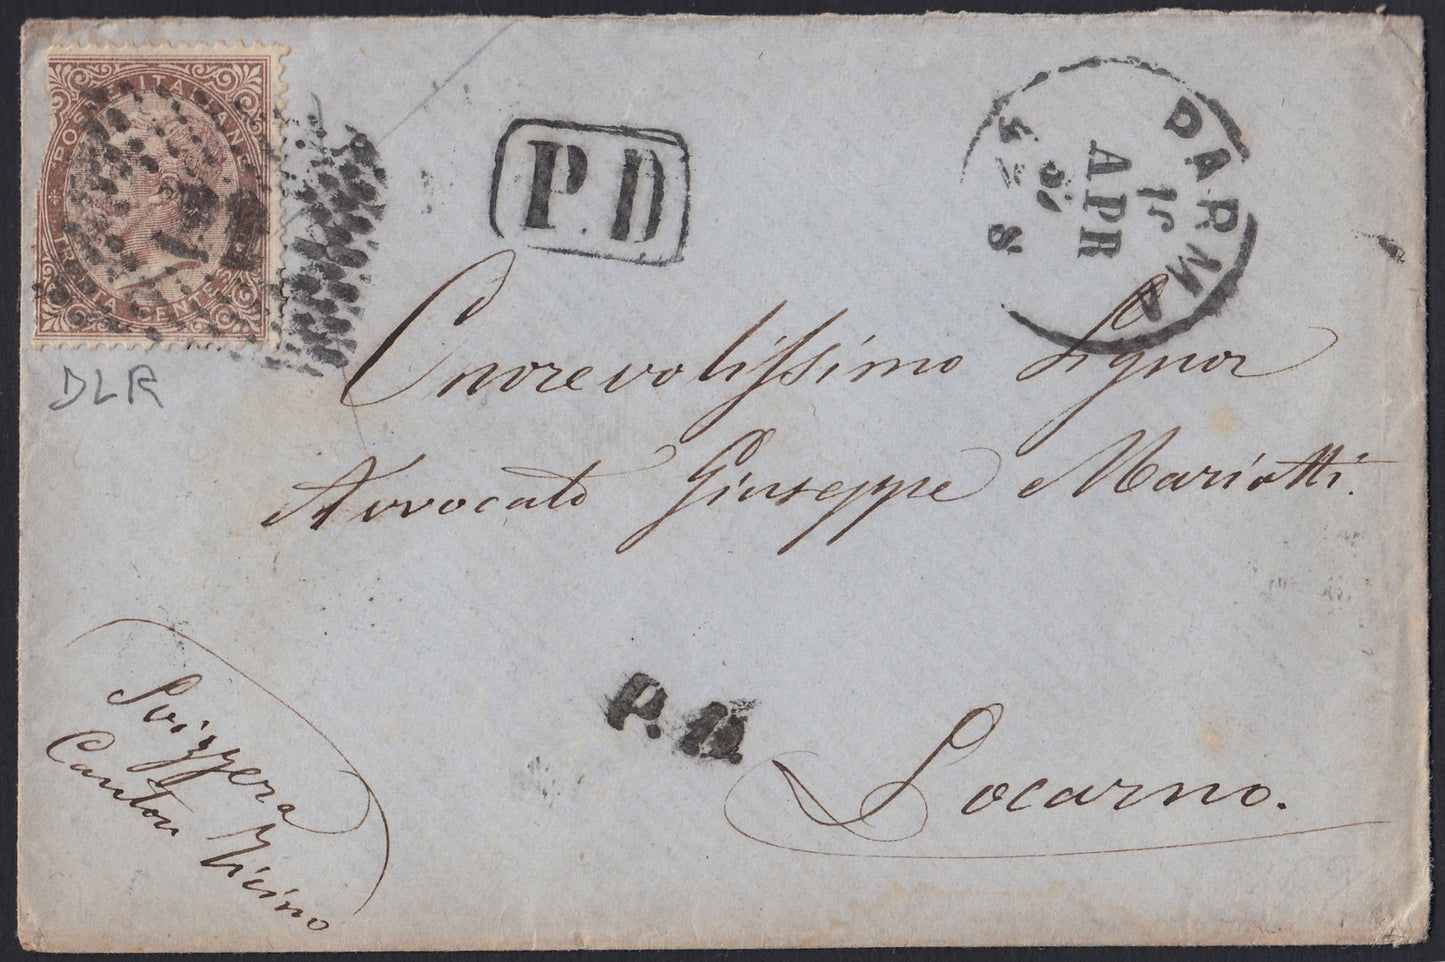 POSTE ITALIANE
TRENTA CENT
DLR
P.D
PARMA
15
APR
8
Onorevolissimo Signor
Avvocato Giuseppe Mariotti.
P.D.
Locarno.
Svizzera
Canton Ticino